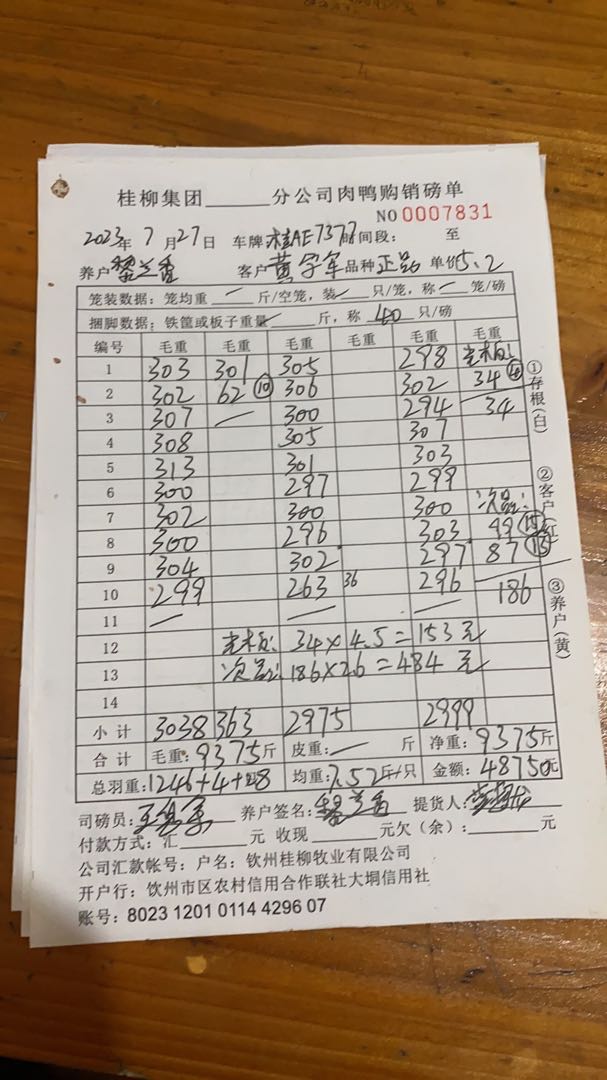 桂柳集团______分公司肉鸭购销磅单
NO 0007831
2023年 7月27日 车牌 桂AE7377 时间段: 至
养户 黎兰香 客户 黄字军 品种 正品 单价 5.2
笼装数据: 笼均重 — 斤/空笼, 装 — 只/笼, 称 — 笼/磅
捆脚数据: 铁筐或板子重量 — 斤, 称 40 只/磅
编号 毛重 毛重 毛重 毛重 毛重 毛重
1 303 301 305 298
2 302 62 ⑩ 306 302 34 ④
3 307 — 300 294 34
4 308 305 307
5 313 301 303
6 300 297 299
7 302 300 300 次品:
8 300 296 303 99 ⑮
9 304 302 297 87 ⑬
10 299 263 36 296 186
11 — — —
12 34×4.5=153元
13 次品: 186×2.6=484元
14
小计 3038 363 2975 2999
合计 毛重: 9375斤 皮重: — 斤 净重: 9375斤
总羽重: 1246+4+28 均重: 7.52斤/只 金额: 48750元
①存根(白)
②客户(红)
③养户(黄)
司磅员: 养户签名: 黎兰香 提货人:
付款方式: 汇______元 收现______元欠(余):______元
公司汇款帐号: 户名: 钦州桂柳牧业有限公司
开户行: 钦州市区农村信用合作联社大垌信用社
账号: 8023 1201 0114 4296 07